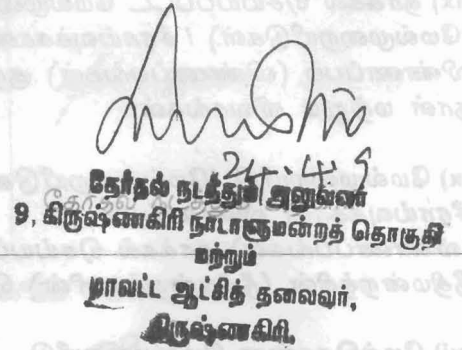 24.4.9
தேர்தல் நடத்தும் அலுவலர்
9, கிருஷ்ணகிரி நாடாளுமன்றத் தொகுதி
மற்றும்
மாவட்ட ஆட்சித் தலைவர்,
கிருஷ்ணகிரி.